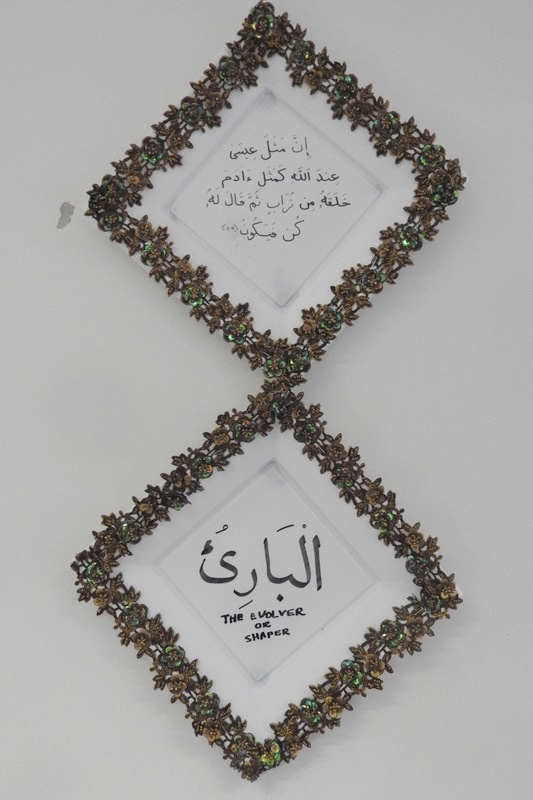 إِنَّ مَثَلَ عِيسَىٰ
عِندَ ٱللَّهِ كَمَثَلِ ءَادَمَ
خَلَقَهُۥ مِن تُرَابٍ ثُمَّ قَالَ لَهُۥ
كُن فَيَكُونُ ⟨٥٩⟩
الْبَارِئُ
THE EVOLVER
OR
SHAPER